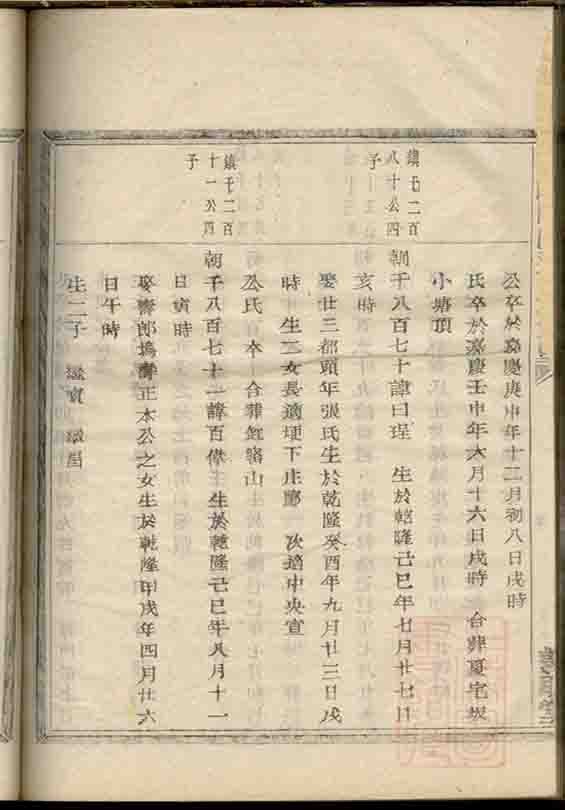 公卒於嘉慶庚申年十二月初八日戌時
氏卒於嘉慶壬申年六月十六日戌時 合葬夏宅坂
小塘頂
鎮千二百
八十公四
子
朝千八百七十諱曰珵 生於乾隆己巳年七月廿七日
亥時
娶廿三都頭年張氏生於乾隆癸酉年九月廿三日戌
時 生二女長適埂下庄鄭 次適中央宣
公氏百卒 合葬虹駱山
鎮千二百
十一公四
子
朝千八百七十一諱百偉 生於乾隆己巳年八月十一
日寅時
娶壽郎塢壽正本公之女生於乾隆甲戌年四月廿六
日午時
生二子 寶 昌